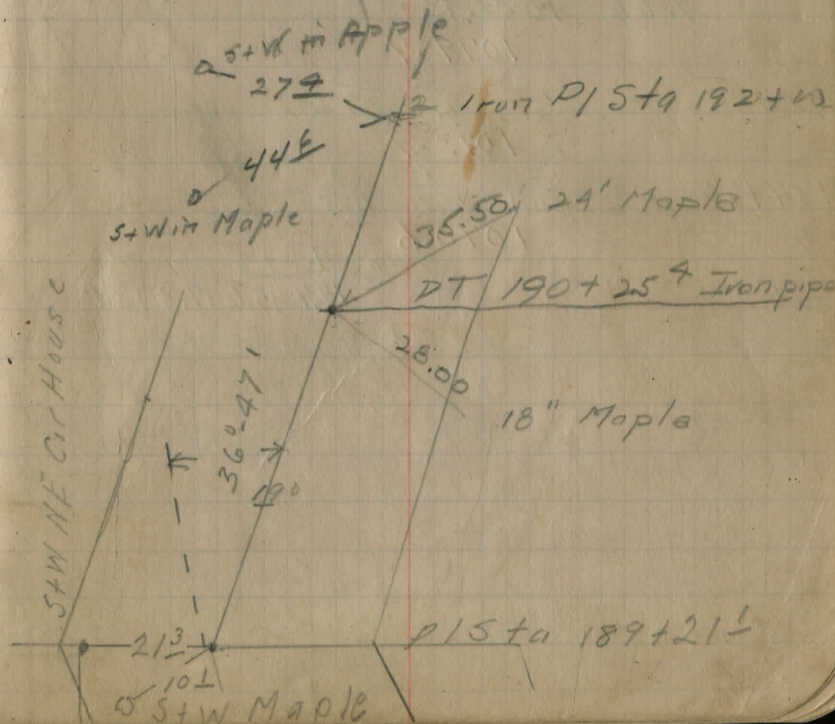 S+W in Apple
27 4
2 Iron P/Sta 192+
44 6
S+W in Maple
35.50
24' Maple
DT 190+25 4 Iron pipe
28.00
18" Maple
36°-47'
19 0
S+W NE Cor House
21 3
P/Sta 189+21 1
10 1
S+W Maple